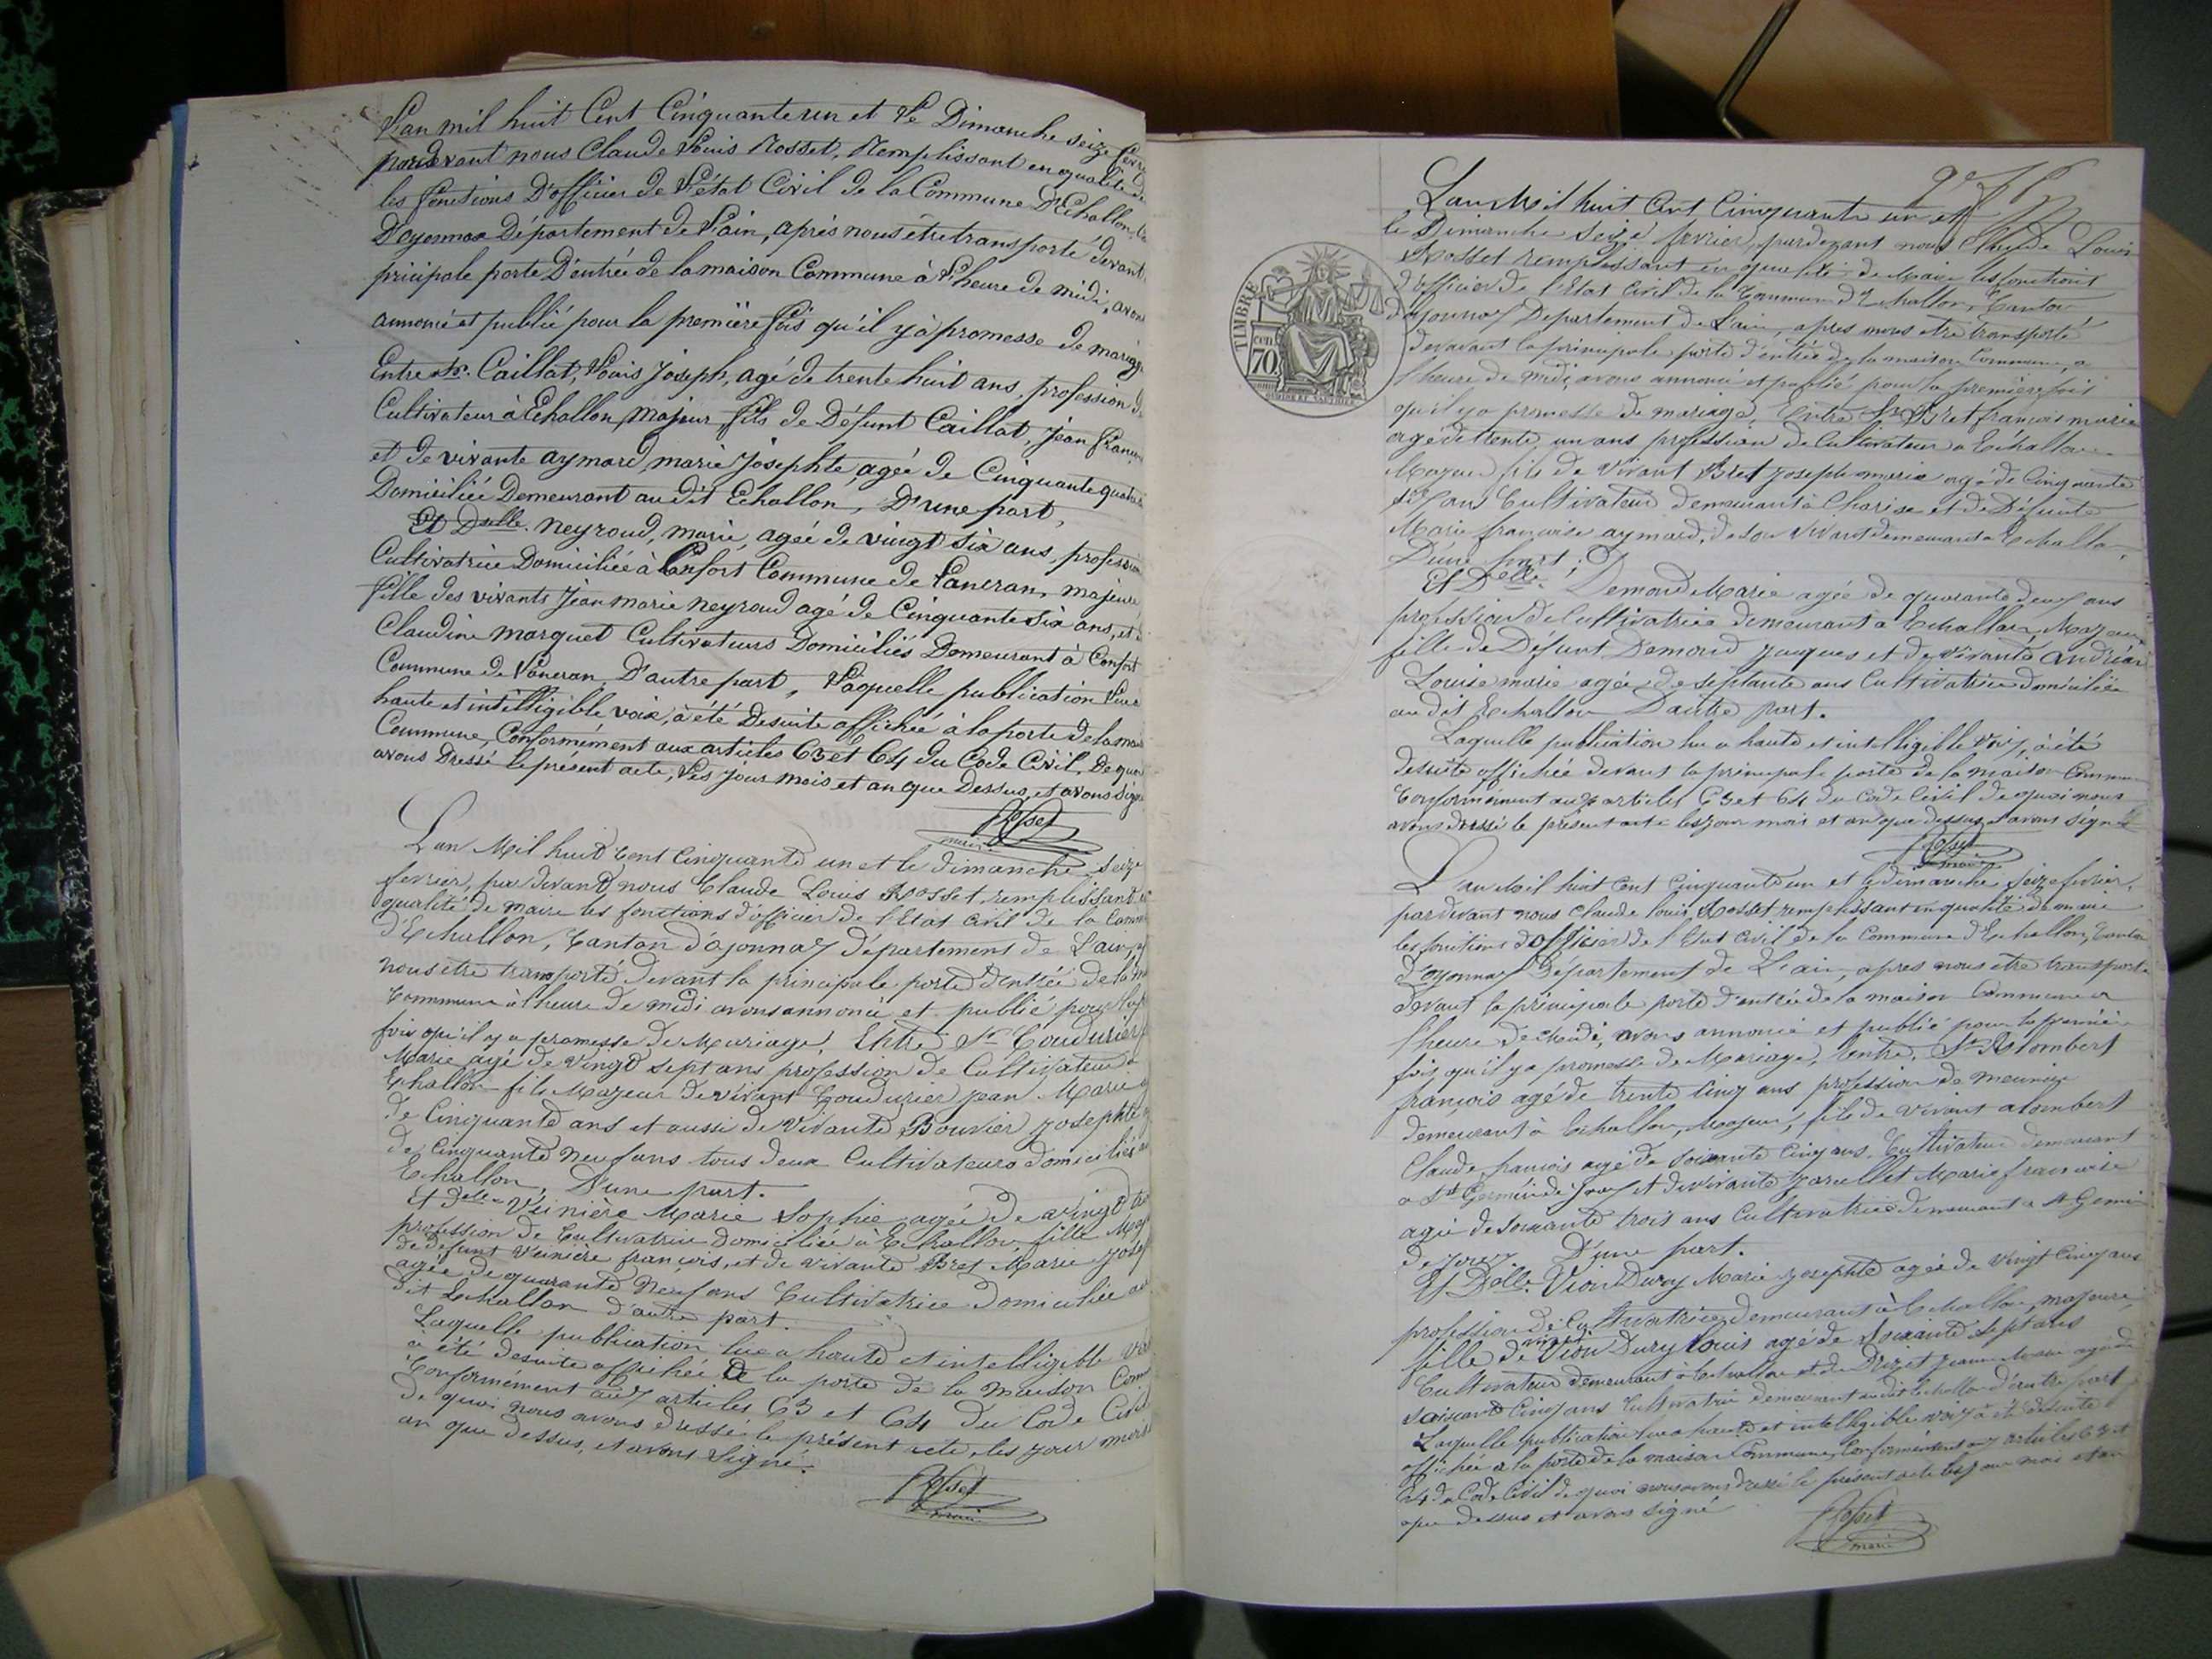 L'an mil huit Cent Cinquante un et Le Dimanche seize
pardevant nous Claude Louis Rosset, Remplissant en qualité de
les fonctions D'officier de L'état Civil de la Commune D'Echallon,
D'oyonnax Département de L'ain, après nous être transporté devant
pricipale porte D'entrée de la maison Commune à L'heure de midi, avons
annoncé et publié pour la première fois qu'il y a promesse de mariage
Entre Sr. Caillat, Louis Joseph, agé de trente huit ans, profession de
Cultivateur à Echallon, majeur, fils de Défunt Caillat, Jean
et de vivante aymard, marie Josephte, agée de Cinquante
Domiciliée Demeurant au dit Echallon, D'une part,
Et Dselle. neyroud, marie, agée de vingt Six ans, profession
Cultivatrice Domiciliée à Confort Commune de Lancran, majeure
fille des vivants Jean marie neyroud agé de Cinquante Six ans, et
Claudine marquet Cultivateurs Domiciliés Demeurant à Confort
Commune de Lancran, D'autre part, Laquelle publication
haute et intelligible voix, à été Desuite affichée à la porte de la
Commune, Conformément aux articles 63 et 64 du Code Civil, De quoi
avons Dressé le présent acte, Les jour mois et an que Dessus, et avons Signé
Rosset
maire
L'an Mil huit Cent Cinquante un et le dimanche Seize
fevrier, par devant nous Claude Louis Rosset remplissant
qualité de maire les fonctions d'officier de l'Etat Civil de la
d'Echallon, Canton d'oyonnax département de L'ain,
nous être transporté devant la principale porte d'entrée de la
Commune à l'heure de midi avons annoncé et publié pour la
fois qu'il y a promesse de Mariage, Entre Sr Coudurier
Marie agé de Vingt sept ans profession de Cultivateur à
Echallon fils Majeur de vivant Coudurier jean Marie
de Cinquante ans et aussi de Vivante Bouvier josephte
de Cinquante Neuf ans tous deux Cultivateurs domiciliés
Echallon, D'une part.
Et Delle Veinière Marie Sophie agée de vingt
profession de Cultivatrice domiciliée à Echallon, fille
de défunt Veinière françois, et de vivante Bret Marie
agée de quarante Neuf ans Cultivatrice domiciliée au
dit Echallon d'autre part.
Laquelle publication lue a haute et intelligible
à été desuite affichée à la porte de la maison
Conformément aux articles 63 et 64 du Code Civil
de quoi nous avons dressé le présent acte, les jour mois
an que dessus, et avons Signé.
Rosset
maire
L'an Mil huit Cent Cinquante un et
le Dimanche Seize fevrier, pardevant nous Claude Louis
Rosset remplissant en qualité de Maire les fonctions
d'officier de l'Etat Civil de la Commune d'Echallon, Canton
d'oyonnax Département de L'ain, apres nous etre transporté
devavant la principale porte d'entrée de la maison Commune, a
l'heure de midi avons annoncé et publié pour la première fois
qu'il y a promesse de mariage, Entre Sr Bret françois marie
agé de trente un ans profession de Cultivateur a Echallon
Majeur fils de Vivant Bret joseph marie agé de Cinquante
ans Cultivateur demeurant à Charix et de Défunte
Marie françoise aymard, de son Vivant demeurant a Echallon,
D'une part;
Et Delle. Demond Marie agée de quarante deux ans
profession de Cultivatrice demeurant a Echallon Majeure
fille de Défunt Demond jacques et de vivante
Louise marie agée de septante ans Cultivatrice domiciliée
au dit Echallon D'autre part.
Laquelle publication lue a haute et intelligible voix, à été
desuite affichée devant la principale porte de la maison Commune
Conformément aux articles 63 et 64 du Code Civil de quoi nous
avons dressé le présent acte les jour mois et an que dessus et avons Signé
Rosset
maire
L'an Mil huit Cent Cinquante un et le dimanche Seize fevrier,
pardevant nous Claude louis Rosset remplissant en qualité de maire
les fonctions d'officier de l'Etat Civil de la Commune d'Echallon, Canton
d'oyonnax Département de L'ain, apres nous etre transporté
devant la principale porte d'entrée de la maison Commune a
l'heure de Midi, avons annoncé et publié pour la première
fois, qu'il y a promesse de Mariage, Entre, Sr Alombert
françois agé de trente Cinq ans profession de meunier
demeurant à Echallon, Majeur, fils de Vivant alombert
Claude françois agé de Soixante Cinq ans, Cultivateur demeurant
a St Germin de joux et de vivante Marie françoise
agée de Soixante trois ans Cultivatrice demeurant a St Germin
de joux, D'une part.
Et Delle. Vion Dury Marie josephte agée de Vingt Cinq ans
profession de Cultivatrice demeurant à Echallon, majeure
fille de Vion Dury Louis agé de Soixante Sept ans
Cultivateur demeurant à Echallon et de agée de
Soixante Cinq ans Cultivatrice demeurant au dit Echallon d'autre part
Laquelle publication lue a haute et intelligible voix à été desuite
affichée a la porte de la maison Commune, Conformément aux articles 63 et
64 du Code Civil de quoi nous avons dressé le présent acte les jour mois et an
que dessus et avons signé
Rosset
maire
TIMBRE
70